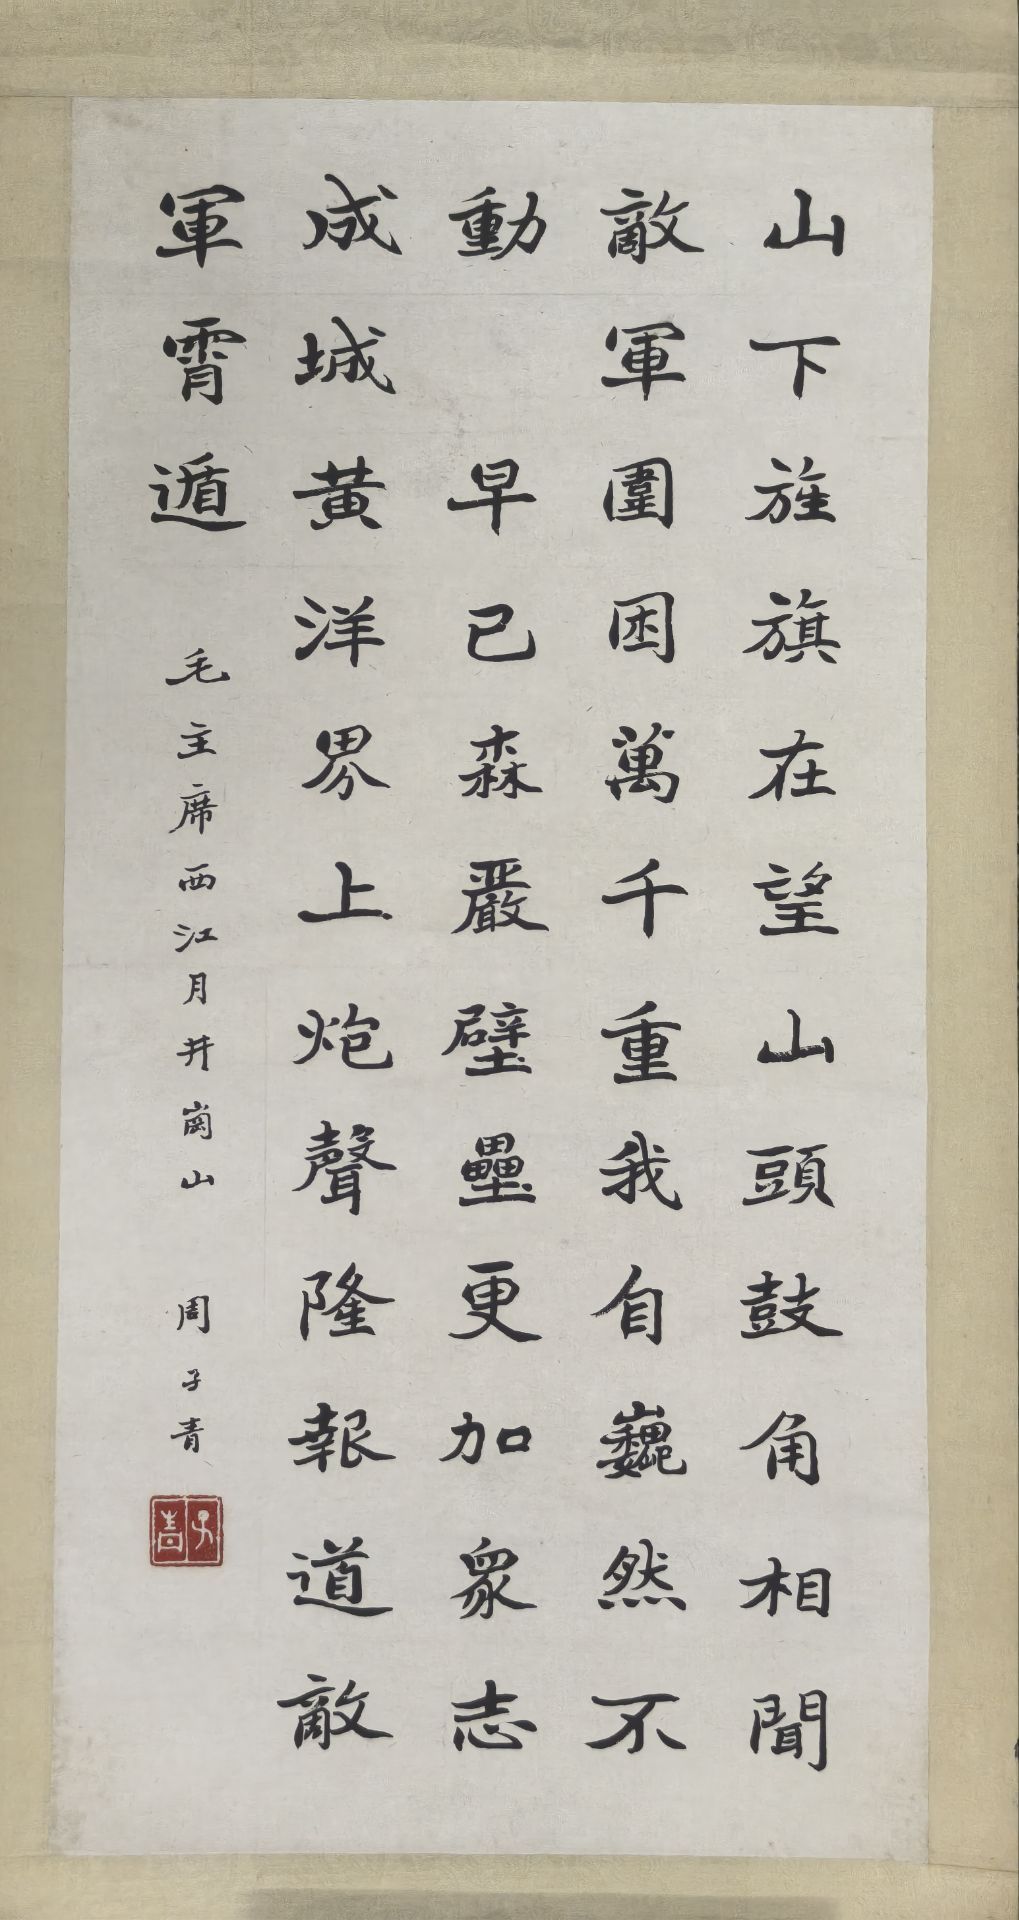 山下旌旗在望山頭鼓角相聞
敵軍圍困萬千重我自巍然不
動 早已森嚴壁壘更加衆志
成城黄洋界上炮聲隆報道敵
軍霄遁
毛主席西江月井崗山 周子青
子青